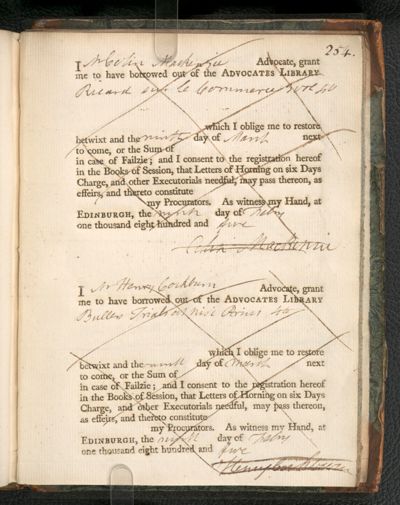 254.
I Mr Colin Mackenzie Advocate, grant
me to have borrowed out of the ADVOCATES LIBRARY
Ricard sur le Commerce 4to
which I oblige me to restore
betwixt and the ninth day of March next
to come, or the Sum of
in case of Failzie; and I consent to the registration hereof
in the Books of Session, that Letters of Horning on six Days
Charge, and other Executorials needful, may pass thereon, as
effeirs, and thereto constitute
my Procurators. As witness my Hand, at
EDINBURGH, the ninth day of Febry
one thousand eight hundred and five
Colin Mackenzie
I Mr Henry Cockburn Advocate, grant
me to have borrowed out of the ADVOCATES LIBRARY
Bullers Trials at Nisi Prius 4to
which I oblige me to restore
betwixt and the ninth day of March next
to come, or the Sum of
in case of Failzie; and I consent to the registration hereof
in the Books of Session, that Letters of Horning on six Days
Charge, and other Executorials needful, may pass thereon,
as effeirs, and thereto constitute
my Procurators. As witness my Hand, at
EDINBURGH, the ninth day of Febry
one thousand eight hundred and five
Henry Cockburn